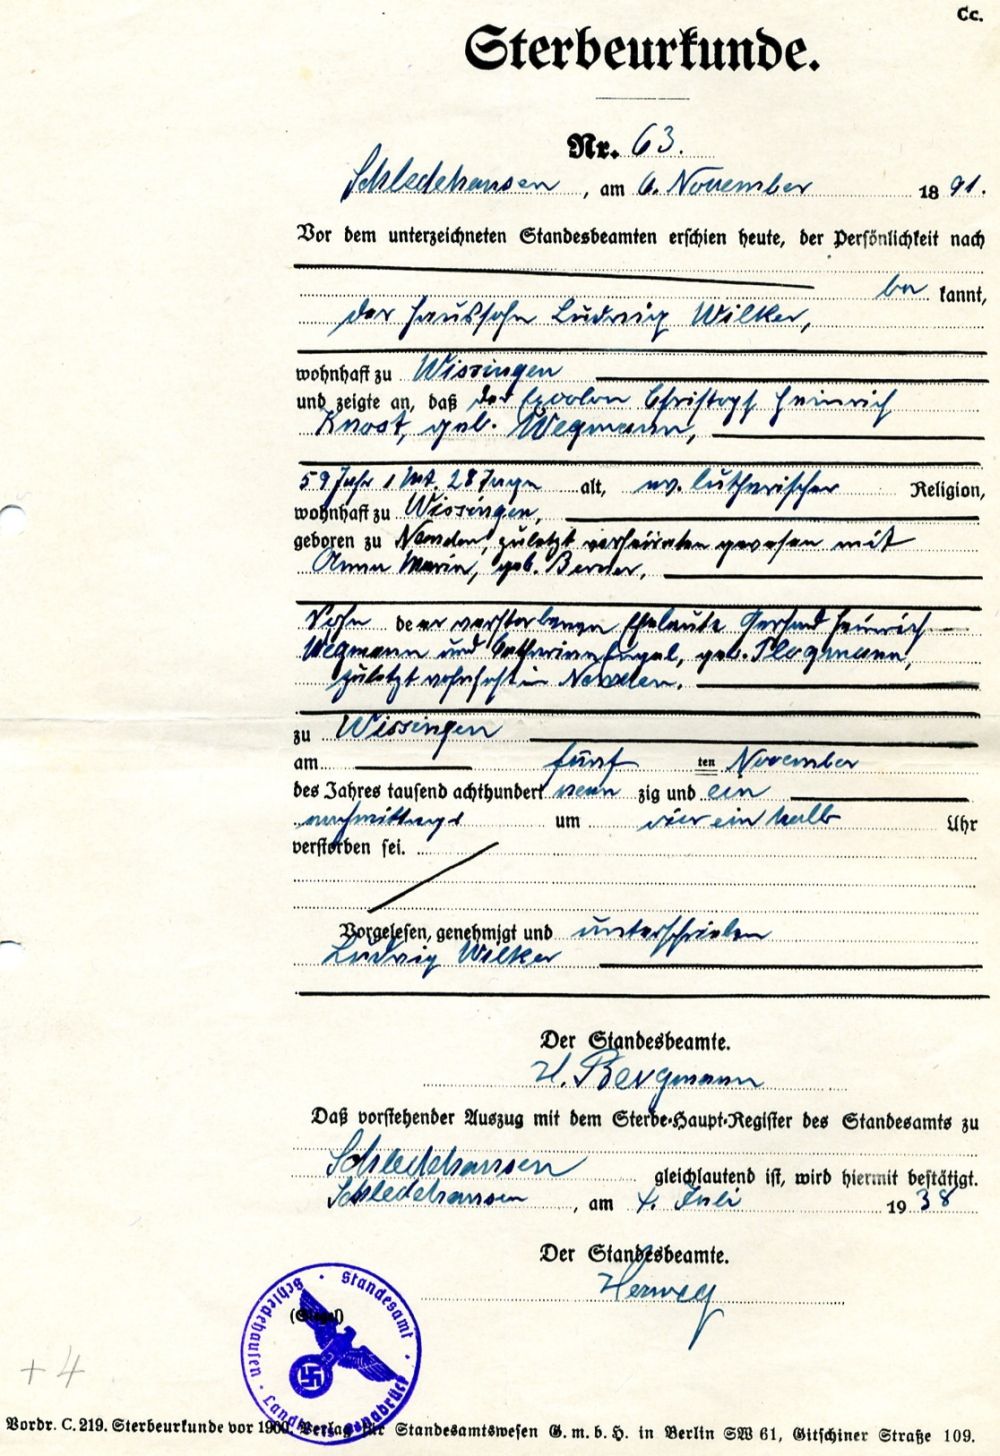 Cc.
Sterbeurkunde.
Nr. 63.
Schledehausen, am 6. November 1891.
Vor dem unterzeichneten Standesbeamten erschien heute, der Persönlichkeit nach
be kannt,
der Haussohn Ludwig Wilker,
wohnhaft zu Wissingen
und zeigte an, daß der Christoph Heinrich
Knost, geb. Wegmann,
59 Jahr 1 Mt. 28 Tage alt, ev. lutherischer Religion,
wohnhaft zu Wissingen,
geboren zu zuletzt verheiratet gewesen mit
Anna Maria, geb.
Sohn der verstorbenen Eheleute Gerhard Heinrich
Wegmann und Catharina Engel, geb. Plogmann,
zuletzt wohnhaft in
zu Wissingen
am fünf ten November
des Jahres tausend achthundert neun zig und ein
nachmittags um vier ein halb Uhr
verstorben sei.
Vorgelesen, genehmigt und unterschrieben
Ludwig Wilker
Der Standesbeamte.
H. Bergmann
Daß vorstehender Auszug mit dem Sterbe-Haupt-Register des Standesamts zu
Schledehausen gleichlautend ist, wird hiermit bestätigt.
Schledehausen, am 4. Juli 1938
Der Standesbeamte.
Herweg
(Siegel)
Standesamt Schledehausen Landkreis Osnabrück
+4
Vordr. C. 219. Sterbeurkunde vor 1900. Verlag für Standesamtswesen G. m. b. H. in Berlin SW 61, Gitschiner Straße 109.